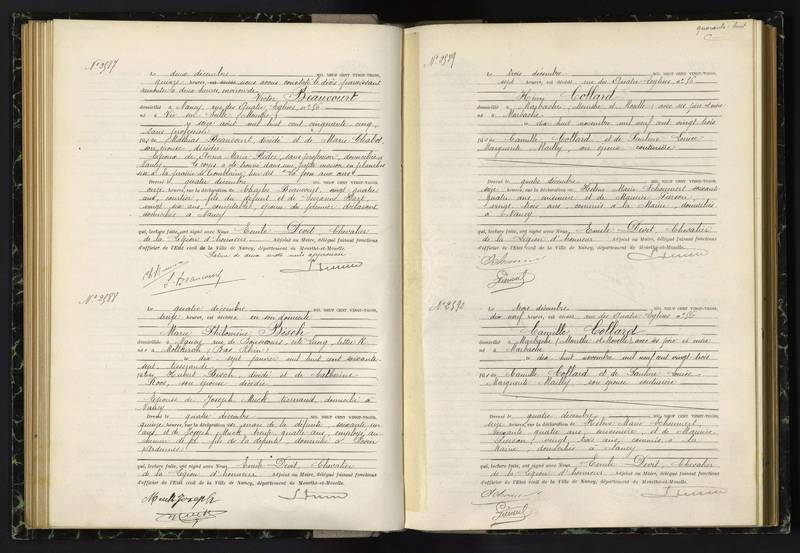 quarante huit
N° 2587
Le deux décembre MIL NEUF CENT VINGT-TROIS,
quinze heures, nous avons constaté le décès paraissant
remonter à deux heures environ de
Victor Beaucourt
domicilié à Nancy, rue des Quatre Eglises, n° 56
né à Vic sur Seille (Moselle)
le seize août mil huit cent cinquante cinq
sans profession
fils de Mathias Beaucourt, décédé et de Marie Chabot,
son épouse décédée
Epoux de Anna Marie sans profession, domiciliée à
Nancy. Le corps a été trouvé dans une petite maison en planches
sise à la prairie de Tomblaine, lieu dit
Dressé le quatre décembre MIL NEUF CENT VINGT-TROIS,
onze heures, sur la déclaration de Charles Beaucourt, vingt quatre
ans, courtier, fils du défunt et de Suzanne
vingt six ans, comptable, épouse du premier déclarant
domiciliés à Nancy
qui, lecture faite, ont signé avec Nous, Emile Devit, Chevalier
de la Légion d'honneur Adjoint au Maire, délégué faisant fonctions
d'officier de l'Etat civil de la Ville de Nancy, département de Meurthe-et-Moselle.
Rature de deux mots nuls approuvée
Beaucourt
N° 2588
Le quatre décembre MIL NEUF CENT VINGT-TROIS,
treize heures, est décédée en son domicile
Marie Philomène Bisch
domiciliée à Nancy, rue de cité Lang, lettre K
née à Molkirch (Bas Rhin)
le dix sept janvier mil huit cent soixante
sept, tisserande
fille de Hubert Bisch, décédé et de Catherine
Rose, son épouse décédée
Epouse de Joseph Muck tisserand, domicilié à
Nancy
Dressé le quatre décembre MIL NEUF CENT VINGT-TROIS,
quinze heures, sur la déclaration de mari de la défunte, soixante un
ans, et de Joseph Muck, trente quatre ans, employé au
chemin de fer, fils de la défunte, domicilié à
(Ardennes)
qui, lecture faite, ont signé avec Nous, Emile Devit, Chevalier
de la Légion d'honneur Adjoint au Maire, délégué faisant fonctions
d'officier de l'Etat civil de la Ville de Nancy, département de Meurthe-et-Moselle.
Muck Joseph
N° 2589
Le trois décembre MIL NEUF CENT VINGT-TROIS,
sept heures, est décédé rue des Quatre Eglises, n° 56
Henri Collard
domicilié à Marbache (Meurthe et Moselle) avec ses père et mère
né à Marbache
le dix huit novembre mil neuf cent vingt trois
fils de Camille Collard et de Pauline Louise
Marguerite Mailly, son épouse couturière
Dressé le quatre décembre MIL NEUF CENT VINGT-TROIS,
seize heures, sur la déclaration de Hélène Marie soixante
quatre ans, cuisinière et de Maurice
vingt trois ans, commis à la Mairie, domiciliés
à Nancy
qui, lecture faite, ont signé avec Nous, Emile Devit, Chevalier
de la Légion d'honneur Adjoint au Maire, délégué faisant fonctions
d'officier de l'Etat civil de la Ville de Nancy, département de Meurthe-et-Moselle.
N° 2590
Le trois décembre MIL NEUF CENT VINGT-TROIS,
dix neuf heures, est décédé rue des Quatre Eglises n° 56
Camille Collard
domicilié à Marbache (Meurthe et Moselle) avec ses père et mère
né à Marbache
le dix huit novembre mil neuf cent vingt trois
fils de Camille Collard et de Pauline Louise
Marguerite Mailly son épouse couturière
Dressé le quatre décembre MIL NEUF CENT VINGT-TROIS,
seize heures, sur la déclaration de Hélène Marie
soixante quatre ans, cuisinière, et de Maurice
vingt trois ans, commis à la
Mairie, domiciliés à Nancy
qui, lecture faite, ont signé avec Nous, Emile Devit, Chevalier
de la Légion d'honneur Adjoint au Maire, délégué faisant fonctions
d'officier de l'Etat civil de la Ville de Nancy, département de Meurthe-et-Moselle.